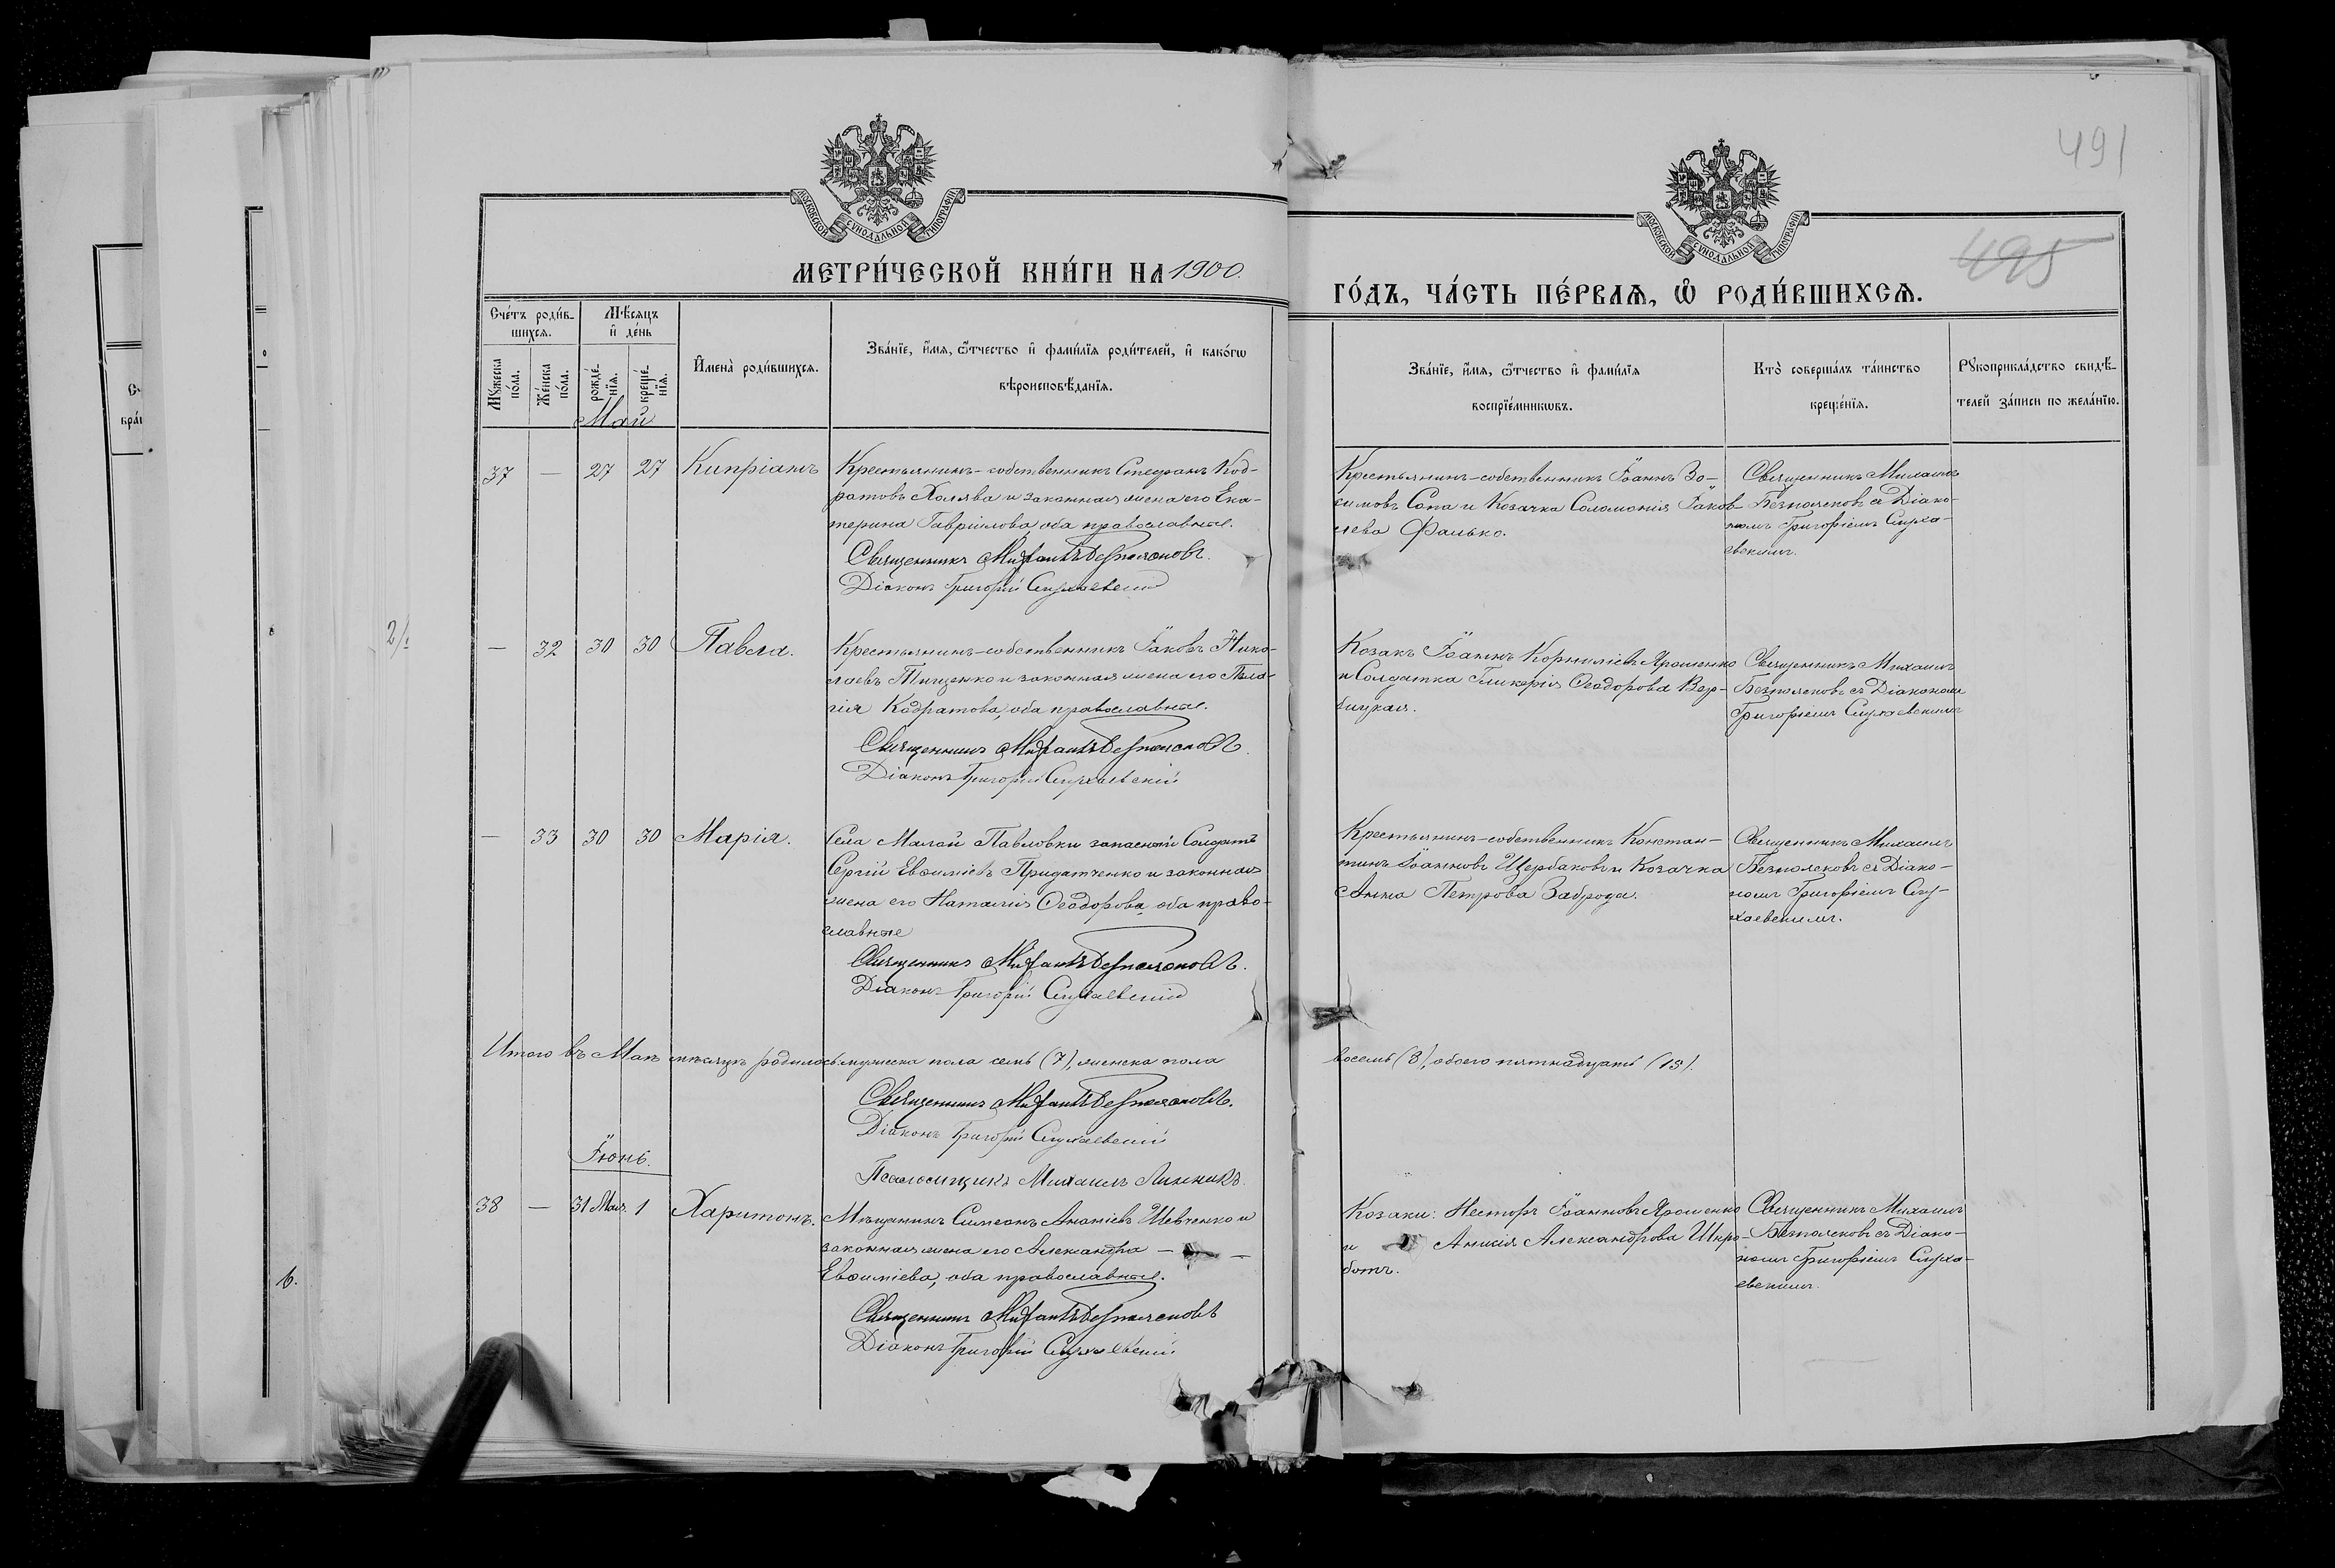 491
495
МОСКОВСКОЙ СУНОДАЛЬНОЙ ТИПОГРАФІИ
МОСКОВСКОЙ СУНОДАЛЬНОЙ ТИПОГРАФІИ
МЕТРИ́ЧЕСКОЙ КНИ́ГИ НА 1900.
ГО́ДЪ, ЧА́СТЬ ПЕ́РВАѦ, Ѽ РОДИ́ВШИХСѦ.
Сче́тъ роди́в-
шихсѧ.
Мѣ́сѧцъ
и҆ де́нь
Мꙋ́жеска
по́ла.
Же́нска
по́ла.
рожде́-
нїѧ.
креще́-
нїѧ.
И҆мена̀ роди́вшихсѧ.
Зва́нїе, и҆́мѧ, ѻ҆́тчество и҆ фами́лїѧ роди́телей, и҆ како́гѡ
вѣроисповѣ́данїѧ.
Зва́нїе, и҆́мѧ, ѻ҆́тчество и҆ фами́лїѧ
воспрїе́мникѡвъ.
Кто̀ соверша́лъ та́инство
креще́нїѧ.
Рꙋкоприкла́дство свидѣ́-
телей за́писи по жела́нїю.
Май
37 — 27 27 Кипріанъ
Крестьянинъ-собственникъ Стефанъ Код-
ратовъ Халява и законная жена его Ека-
терина Гавріилова, оба православные.
Священникъ Михаилъ Безпояековъ.
Діаконъ Григорій Сухаевскій
Крестьянинъ-собственникъ Іоаннъ Зо-
симовъ Сопа и Козачка Соломонія Іаков-
лева Фалько.
Священникъ Михаилъ
Безпоясковъ съ Діако-
номъ Григоріемъ Суха-
евскимъ.
— 32 30 30 Павла.
Крестьянинъ-собственникъ Іаковъ Нико-
лаевъ Тищенко и законная жена его Пела-
гія Кодратова, оба православные.
Священникъ Михаилъ Безпоясковъ.
Діаконъ Григорій Сухаевскій
Козакъ Іоаннъ Корниліевъ Ярошенко
и Солдатка Гликерія Ѳеодорова Вер-
бицкая.
Священникъ Михаилъ
Безпоясковъ съ Діакономъ
Григоріемъ Сухаевскимъ
— 33 30 30 Марія.
Села Малой Павловки запасной Солдатъ
Сергій Евѳиміевъ Придатченко и законная
жена его Наталія Ѳеодорова, оба право-
славные
Священникъ Михаилъ Безпоясковъ.
Діаконъ Григорій Сухаевскій
Крестьянинъ-собственникъ Констан-
тинъ Іоанновъ Щербаковъ и Козачка
Анна Петрова Заброда.
Священникъ Михаилъ
Безпоясковъ съ Діако-
номъ Григоріемъ Су-
хаевскимъ.
Итого въ Маѣ мѣсяцѣ родилось мужеска пола семь (7), женска пола
восемь (8), обоего пятнадцать (15).
Священникъ Михаилъ Безпоясковъ.
Діаконъ Григорій Сухаевскій
Псаломщикъ Михаилъ Линникъ.
Іюнь.
38 — 31 Мая. 1 Харитонъ.
Мѣщанинъ Симеонъ Ананіевъ Шевченко и
законная жена его Александра —
Евѳиміева, оба православные.
Священникъ Михаилъ Безпоясковъ
Діаконъ Григорій Сухаевскій
Козаки: Несторъ Іоанновъ Ярошенко
и Анисія Александрова Шкро-
ботъ.
Священникъ Михаилъ
Безпоясковъ съ Діако-
номъ Григоріемъ Суха-
евскимъ.